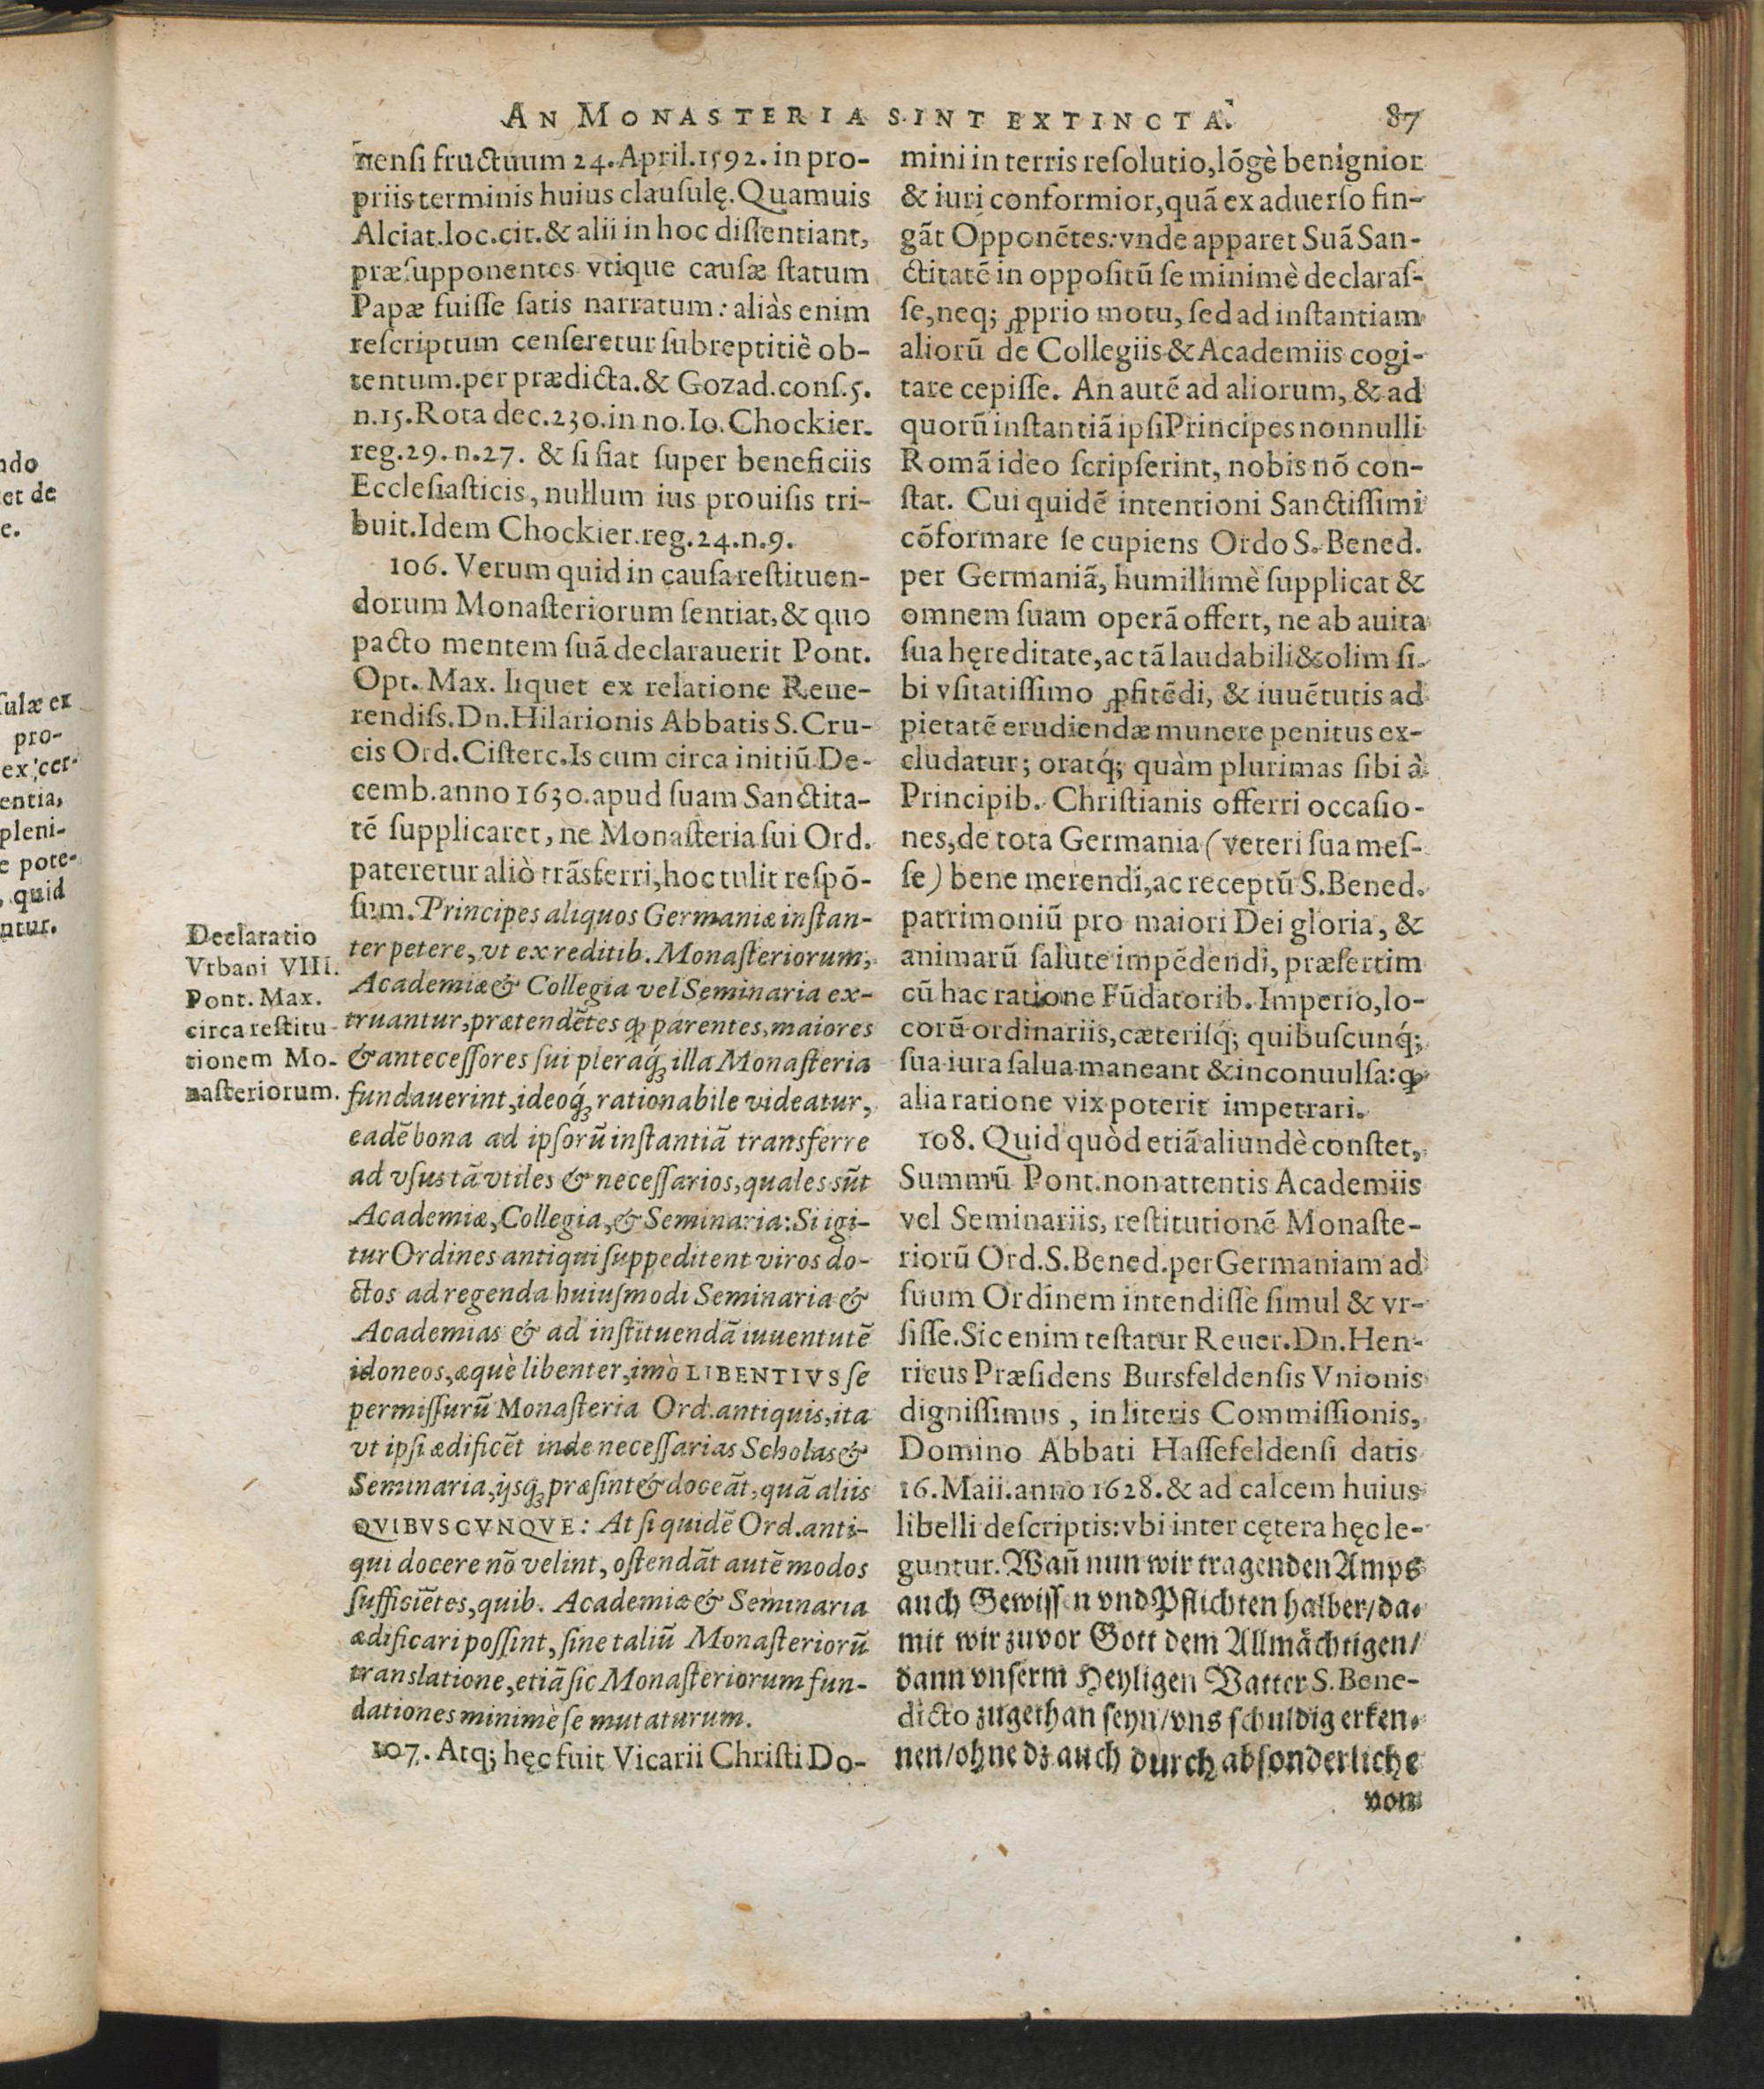 AN MONASTERIA SINT EXTINCTA. 87
nensi fructuum 24. April. 1592. in pro-
priis terminis huius clausulę. Quamuis
Alciat. loc. cit. & alii in hoc dissentiant,
præsupponentes vtique causæ statum
Papæ fuisse satis narratum: aliàs enim
rescriptum censeretur subreptitiè ob-
tentum. per prædicta. & Gozad. cons. 5.
n. 15. Rota dec. 230. in no. Io. Chockier.
reg. 29. n. 27. & si fiat super beneficiis
Ecclesiasticis, nullum ius prouisis tri-
buit. Idem Chockier. reg. 24. n. 9.
106. Verum quid in causa restituen-
dorum Monasteriorum sentiat, & quo
pacto mentem suã declarauerit Pont.
Opt. Max. liquet ex relatione Reue-
rendiss. Dn. Hilarionis Abbatis S. Cru-
cis Ord. Cisterc. Is cum circa initiũ De-
cemb. anno 1630. apud suam Sanctita-
tẽ supplicaret, ne Monasteria sui Ord.
pateretur aliò trãsferri, hoc tulit respõ-
sum. Principes aliquos Germaniæ instan-
ter petere, vt ex reditib. Monasteriorum,
Academiæ & Collegia vel Seminaria ex-
truantur, prætendẽtes ꝙ parentes, maiores
& antecessores sui pleraq́ꝫ illa Monasteria
fundauerint, ideoq́ꝫ rationabile videatur,
eadẽ bona ad ipsorũ instantiã transferre
ad vsus tã vtiles & necessarios, quales sũt
Academiæ, Collegia, & Seminaria: Si igi-
tur Ordines antiqui suppeditent viros do-
ctos ad regenda huiusmodi Seminaria &
Academias & ad instituendã iuuentutẽ
idoneos, æquè libenter, imò LIBENTIVS se
permissurũ Monasteria Ord. antiquis, ita
vt ipsi ædificẽt inde necessarias Scholas &
Seminaria, ijsqꝫ præsint & doceãt, quã aliis
QVIBVSCVNQVE: At si quidẽ Ord. anti-
qui docere nõ velint, ostendãt autẽ modos
sufficiẽtes, quib. Academiæ & Seminaria
ædificari possint, sine taliũ Monasteriorũ
translatione, etiã sic Monasteriorum fun-
dationes minimè se mutaturum.
107. Atq; hęc fuit Vicarii Christi Do-
Declaratio
Vrbani VIII.
Pont. Max.
circa restitu-
tionem Mo-
nasteriorum.
mini in terris resolutio, lõgè benignior
& iuri conformior, quã ex aduerso fin-
gãt Opponẽtes: vnde apparet Suã San-
ctitatẽ in oppositũ se minimè declaras-
se, neq; ꝓprio motu, sed ad instantiam
aliorũ de Collegiis & Academiis cogi-
tare cepisse. An autẽ ad aliorum, & ad
quorũ instantiã ipsi Principes nonnulli
Romã ideo scripserint, nobis nõ con-
stat. Cui quidẽ intentioni Sanctissimi
cõformare se cupiens Ordo S. Bened.
per Germaniã, humillimè supplicat &
omnem suam operã offert, ne ab auita
sua hęreditate, ac tã laudabili & olim si-
bi vsitatissimo ꝓfitẽdi, & iuuẽtutis ad
pietatẽ erudiendæ munere penitus ex-
cludatur; oratq́; quàm plurimas sibi à
Principib. Christianis offerri occasio-
nes, de tota Germania (veteri sua mes-
se) bene merendi, ac receptũ S. Bened.
patrimoniũ pro maiori Dei gloria, &
animarũ salute impẽdendi, præsertim
cũ hac ratione Fũdatorib. Imperio, lo-
corũ ordinariis, cæterisq́; quibuscunq́;
sua iura salua maneant & inconuulsa: ꝙ
alia ratione vix poterit impetrari.
108. Quid quòd etiã aliundè constet,
Summũ Pont. non attentis Academiis
vel Seminariis, restitutionẽ Monaste-
riorũ Ord. S. Bened. per Germaniam ad
suum Ordinem intendisse simul & vr-
sisse. Sic enim testatur Reuer. Dn. Hen-
ricus Præsidens Bursfeldensis Vnionis
dignissimus, in literis Commissionis,
Domino Abbati Hassefeldensi datis
16. Maii. anno 1628. & ad calcem huius
libelli descriptis: vbi inter cętera hęc le-
guntur. Wañ nun wir tragenden Ampts
auch Gewissen vnd Pflichten halber/ da-
mit wir zuvor Gott dem Allmächtigen/
dann vnserm Heyligen Vatter S. Bene-
dicto zugethan seyn/ vns schuldig erken-
nen/ ohne dz auch durch absonderliche
von